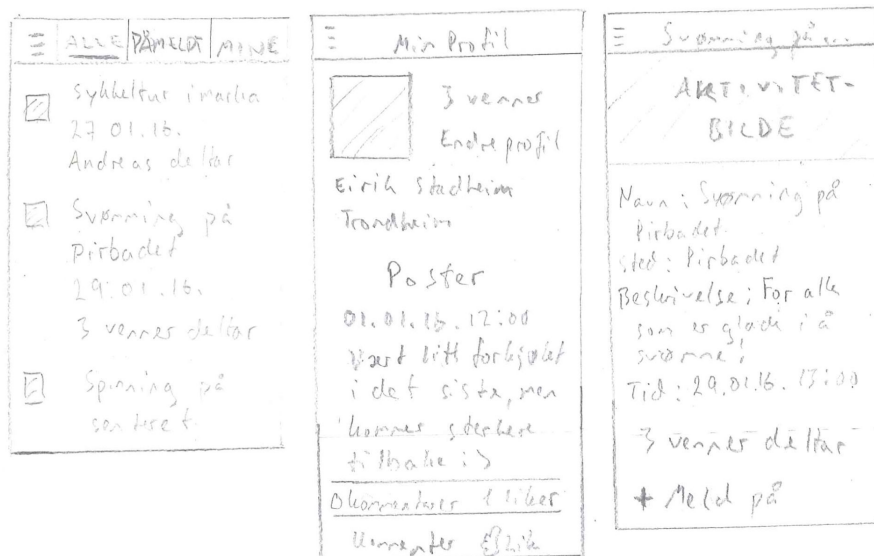 ALLE PÅMELDT MINE
Sykkeltur i marka
27 01.16.
Andreas deltar
Svømming på
Pirbadet
29.01.16.
3 venner deltar
Spinning på
senteret
Min Profil
3 venner
Endre profil
Eirik Stadheim
Trondheim
Poster
01.01.16. 12:00
Vært litt forkjølet
i det siste, men
kommer sterkere
tilbake :)
0 kommentarer 1 liker
Kommenter Lik
Svømming på...
AKTIVITET-
BILDE
Navn: Svømming på
Pirbadet
Sted: Pirbadet
Beskrivelse: For alle
som er glade i å
svømme!
Tid: 29.01.16. 13:00
3 venner deltar
+ Meld på